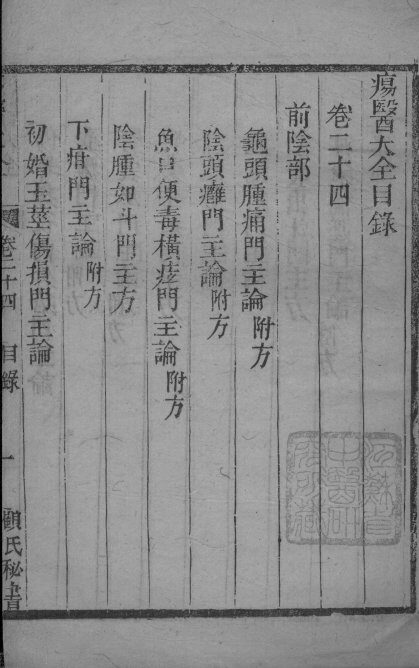 瘍醫大全目錄
卷二十四
前陰部
龜頭腫痛門主論 附方
陰頭癰門主論 附方
魚口便毒橫痃門主論 附方
陰腫如斗門主方
下疳門主論 附方
初婚玉莖傷損門主論
卷二十四 目錄 一 顧氏秘書